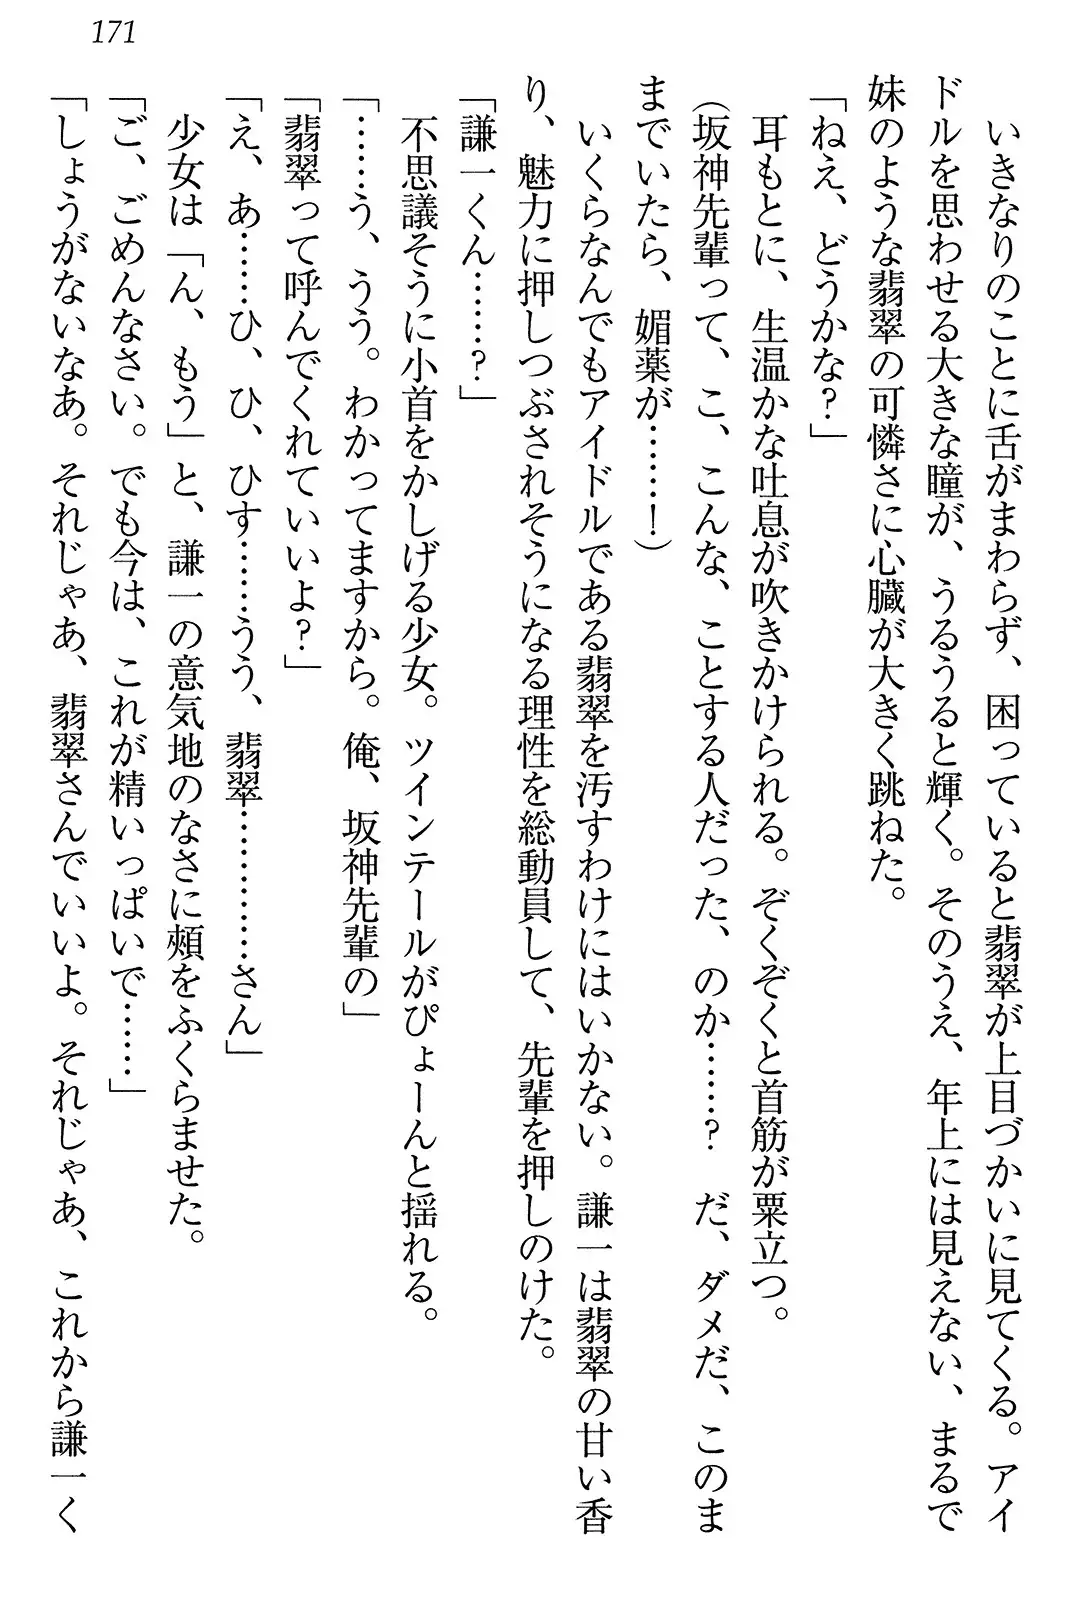 171
いきなりのことに舌がまわらず、困っていると翡翠が上目づかいに見てくる。アイ
ドルを思わせる大きな瞳が、うるうると輝く。そのうえ、年上には見えない、まるで
妹のような翡翠の可憐さに心臓が大きく跳ねた。
「ねえ、どうかな?」
耳もとに、生温かな吐息が吹きかけられる。ぞくぞくと首筋が粟立つ。
(坂神先輩って、こ、こんな、ことする人だった、のか……? だ、ダメだ、このま
までいたら、媚薬が……!)
いくらなんでもアイドルである翡翠を汚すわけにはいかない。謙一は翡翠の甘い香
り、魅力に押しつぶされそうになる理性を総動員して、先輩を押しのけた。
「謙一くん……?」
不思議そうに小首をかしげる少女。ツインテールがぴょーんと揺れる。
「……う、うう。わかってますから。俺、坂神先輩の」
「翡翠って呼んでくれていいよ?」
「え、あ……ひ、ひ、ひす……うう、翡翠…………さん」
少女は「ん、もう」と、謙一の意気地のなさに頬をふくらませた。
「ご、ごめんなさい。でも今は、これが精いっぱいで……」
「しょうがないなあ。それじゃあ、翡翠さんでいいよ。それじゃあ、これから謙一く